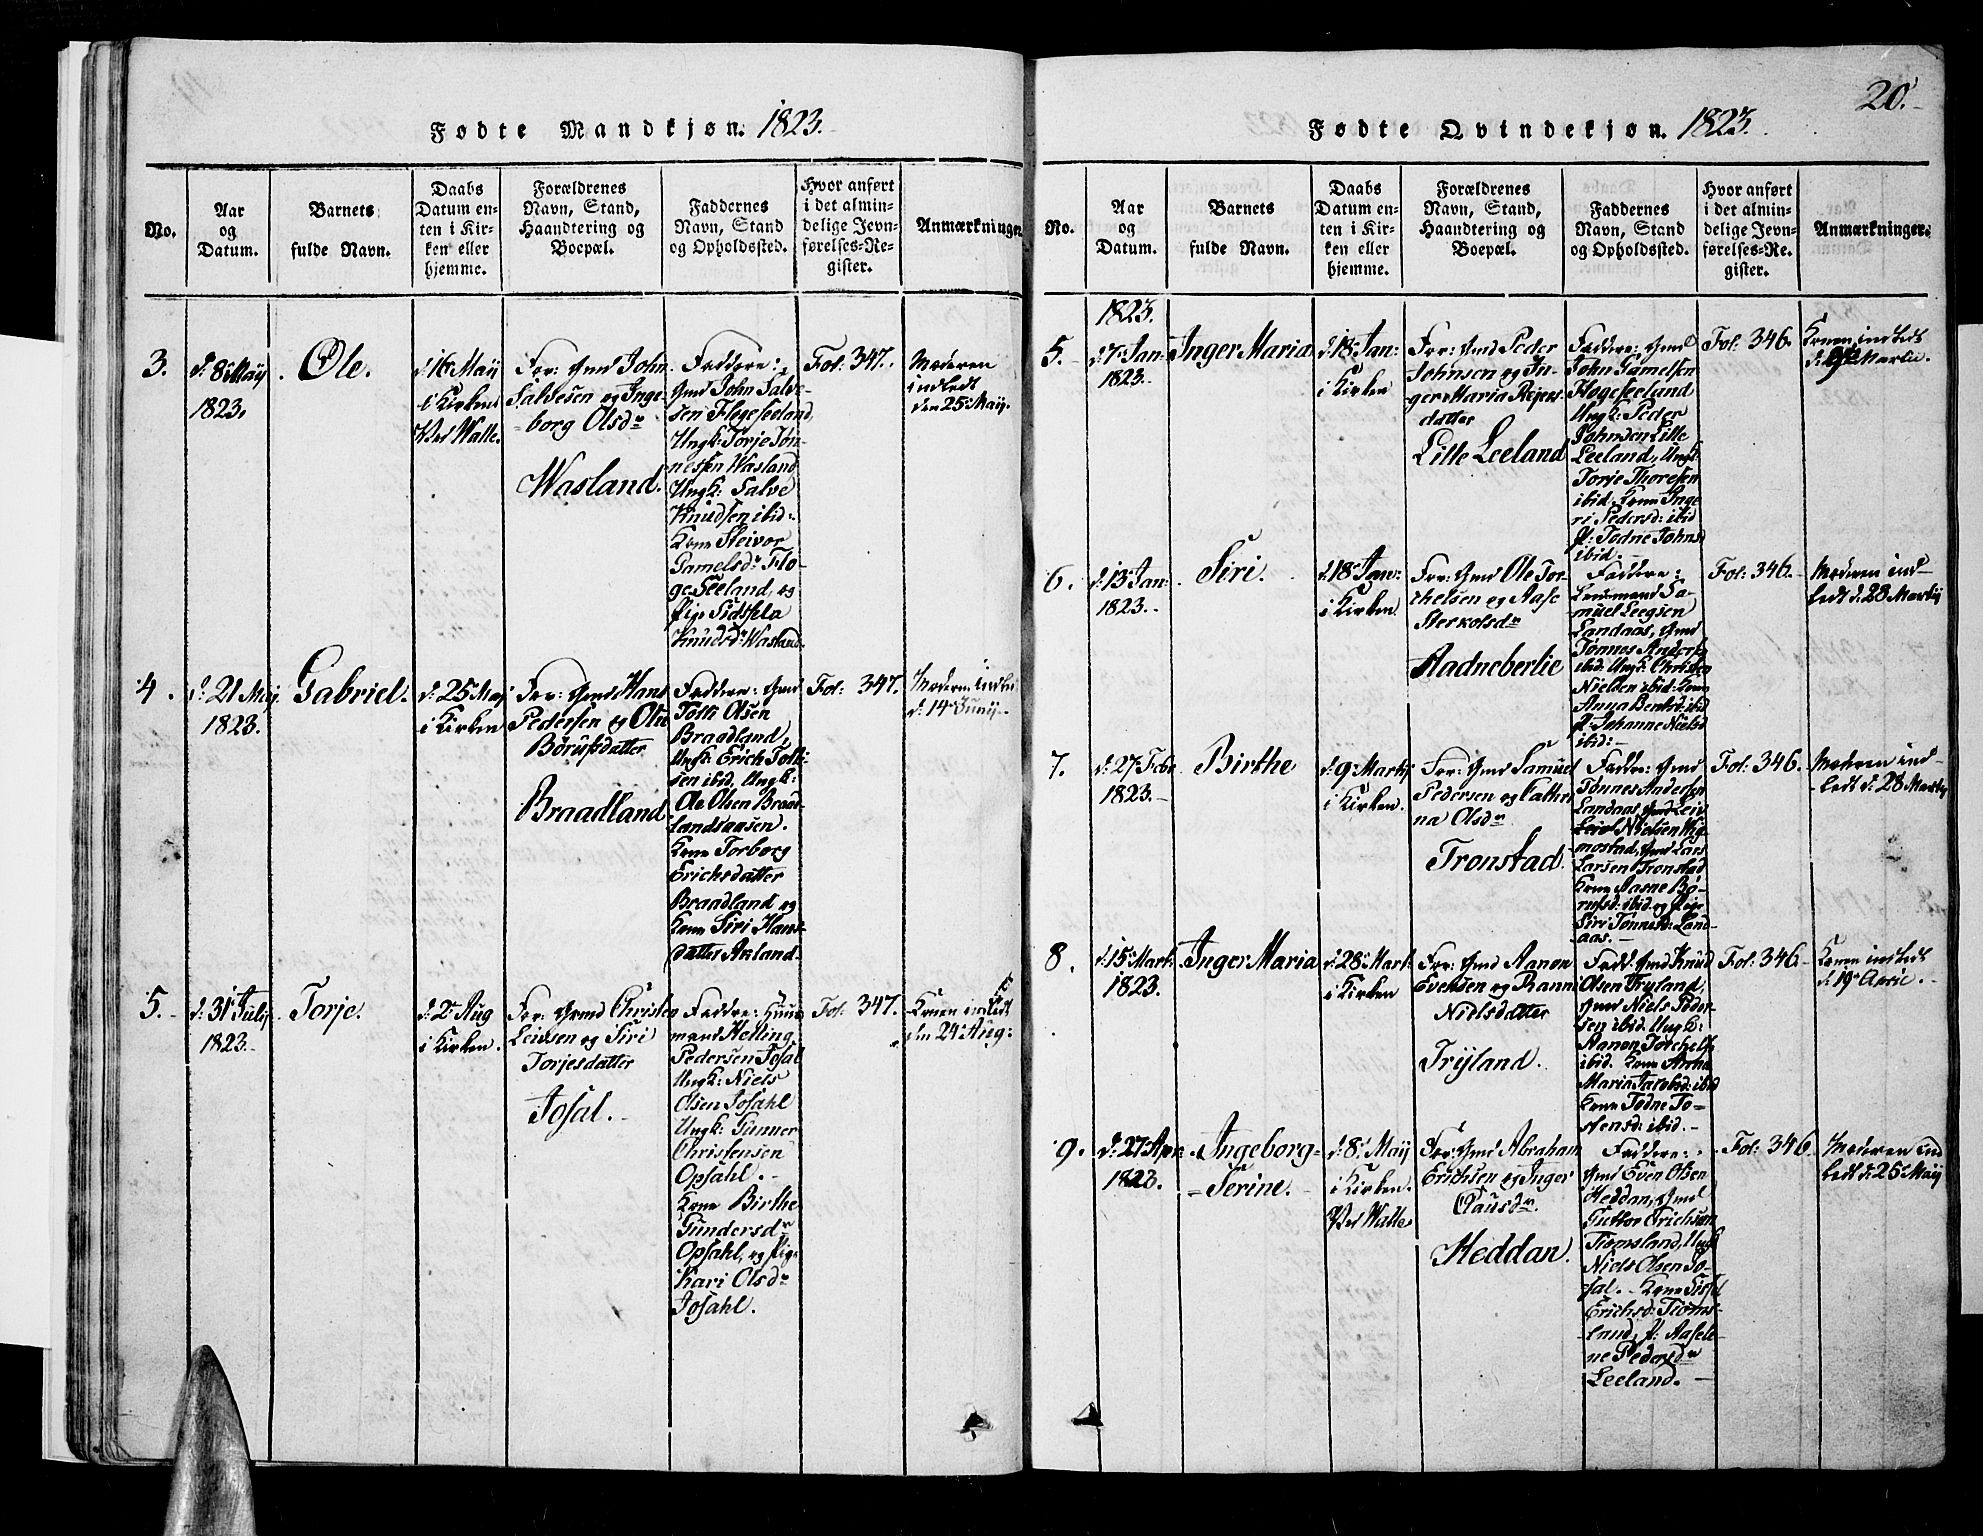 Fødte Mandkjøn. 1823.
No.
Aar
og
Datum.
Barnets
fulde Navn.
Daabs
Datum en-
ten i Kir-
ken eller
hjemme.
Forældrenes
Navn, Stand,
Haandtering og
Boepæl.
Faddernes
Navn, Stand
og Opholdssted.
Hvor anført
i det almin-
delige Jevn-
førelses-Re-
gister.
Anmærkninger.
3.
d. 8 Maij
1823.
Ole.
d. 16 Maij
i Kirken
Ved Walle.
For: Gmd John
Salvesen og Inge
borg Olsdr
Wasland.
Faddere:
Gmd John Salve-
sen Høgeseeland,
Ungk: Torje Tøn-
nessen Wasland
Ungk: Salve
Knudsen ibid:
Kone Steivor
Gamelsdr Hø-
geseeland, og
Pige Sidsela
Knudsdr Wasland.
Fol: 347.
Moderen
indledt
den 25 Maij.
4.
d. 21 Maij
1823.
Gabriel.
d. 25 Maij
i Kirken
For: Gmd Hans
Pedersen og
Børufsdatter
Braadland
Faddere: Gmd
Tolli Olsen
Braadland,
Ungk: Erich Tolli-
sen ibid, Ungk:
Ole Olsen Braad-
landsaasen.
Kone Torborg
Erichsdatter
Braadland og
Kone Siri Hans-
datter Aaland.
Fol: 347.
Moderen indledt
d. 14 Junij
5.
d. 31 Julij
1823.
Torje.
d. 2 Aug
i Kirken.
For: Gmd Christen
Leivsen og Siri
Torjesdatter
Josal.
Faddere: Huus
mand Helling
Pedersen Josal
Ungk: Niels
Olsen Josahl
Ungk: Gunner
Christensen
Opsahl.
Kone Birthe
Gundersdr
Opsahl, og Pig.
Kari Olsdr
Josahl.
Fol: 347.
Konen indledt
den 24 Aug:
20.
Fødte Qvindekjøn. 1823.
No.
Aar
og
Datum.
Barnets
fulde Navn.
Daabs
Datum en-
ten i Kir-
ken eller
hjemme.
Forældrenes
Navn, Stand,
Haandtering og
Boepæl.
Faddernes
Navn, Stand
og Opholdssted.
Hvor anført
i det almin-
delige Jevn-
førelses-Re-
gister.
Anmærkninger.
1823.
5.
d. 7 Jan:
1823.
Inger Maria
d. 18 Jan:
i Kirken
For: Gmd Peder
Johnsen og In-
ger Maria Rejers
datter
Lille Leeland
Faddere: Gmd
John Gamelsen
Høgeseeland
Ungk: Peder
Johnsen Lille
Leeland, Ungk:
Torje Thoresen
ibid. Kone Inge
ri Pedersd: ibid
P: Todne Johnsd
ibid.
Fol: 346.
Konen indledt
d. Martii
6.
d. 13 Jan:
1823.
Siri.
d. 18 Jan:
i Kirken
For: Gmd Ole Tor-
chelsen og Aase
Sterkolsdr
Aadneberlie
Faddere:
Lensmand Sa-
muel Leegsen
Landaas, Gmd
Tønnes Anders:
ibid. Ungk: Christen
Nielsen ibid: Kone
Anna Berthesd: ibid
P: Johanne Nielsd
ibid:
Fol: 346.
Moderen ind-
ledt d. 28 Martij
7.
d. 27 Febr
1823.
Birthe
d. 9 Martij
i Kirken.
For: Gmd Samuel
Pedersen og Cathri
na Olsdr
Tronstad.
Faddere: Gmd
Tønnes Andersen
Landaas
Nielsen Vig-
mostad, Gmd Lars
Larsen Tronstad
Kone Aasne Bø-
rufsd: ibid. og Pige
Siri Tønnesd: Land-
aas.
Fol: 346.
Moderen ind-
ledt d. 28 Martij
8.
d. 15 Mart:
1823.
Inger Maria
d. 28 Mart:
i Kirken
For: Gmd Aanon
Evensen og Ranni
Nielsdatter
Tryland.
Fadd: Gmd Knud
Olsen Tryland,
Gmd Niels Peder-
sen ibid. Ungk:
Aanon Torchels:
ibid. Kone Anna
Maria Jacobsd: ibid
Kone Todne To-
stensd: ibid.
Fol: 346
Konen indledt
d. 19 April.
9.
d. 27 Apr:
1823.
Ingeborg
Serine.
d. 8 Maij
i Kirken.
Ved Walle
For: Gmd Abraham
Erichsen og Inger
Clausdr
Heddan.
Faddere:
Gmd Even Olsen
Heddan, Gmd
Guttor Erichsen
Tiomsland, Ungk
Niels Olsen Jo-
sal. Kone Sissel
Erichsd: Tioms-
land, P: Aasele-
ne Pedersdr
Leeland.
Fol: 346.
Moderen ind
ledt d. 25 Maij